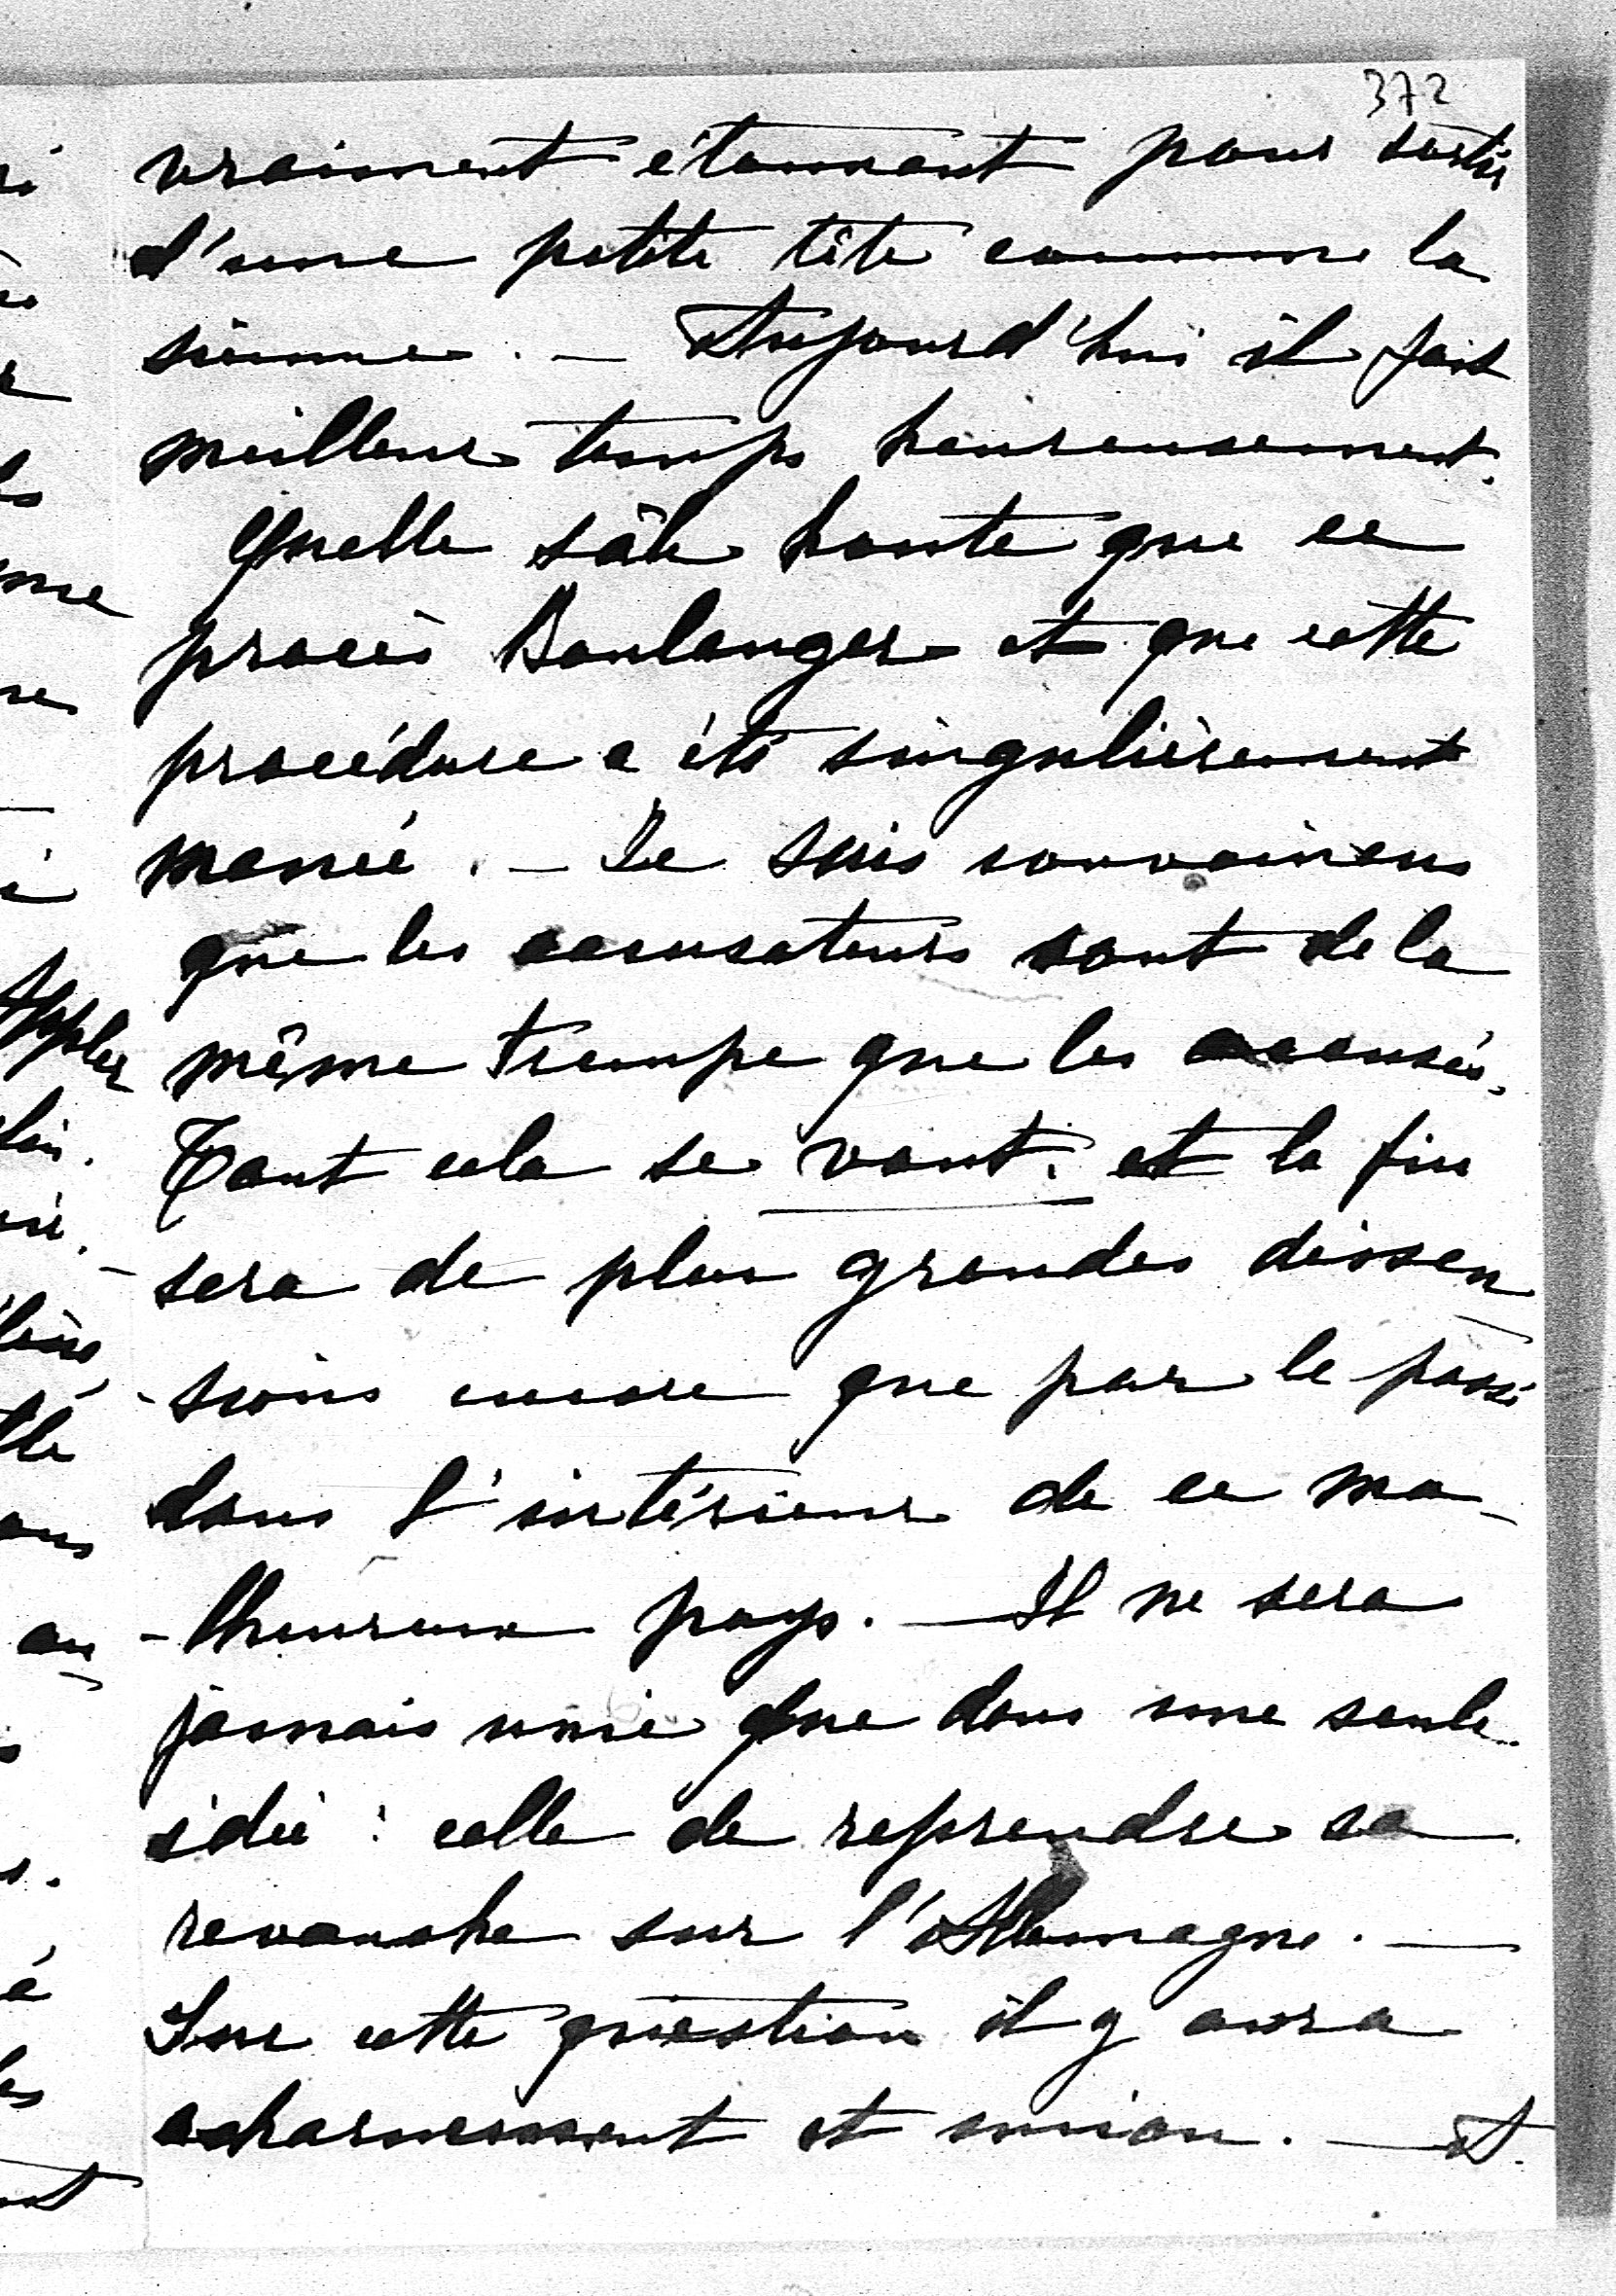 372
vraiment étonnant pour sortir
d'une petite tête comme la
sienne. — Aujourd'hui il fait
meilleur temps heureusement.
Quelle sâle honte que ce
procès Boulanger et que cette
procédure a été singulièrement
menée. — Je suis convaincu
que les accusateurs sont de la
même trempe que les accusés.
Tout cela se vaut. et la fin
sera de plus grandes dissen
-sions encore que par le passé
dans l'intérieur de ce ma-
-lheureux pays. — Il ne sera
jamais unie que dans une seule
idée : celle de reprendre sa
revanche sur l'Allemagne. —
Sur cette question il y aura
acharnement et union. — et